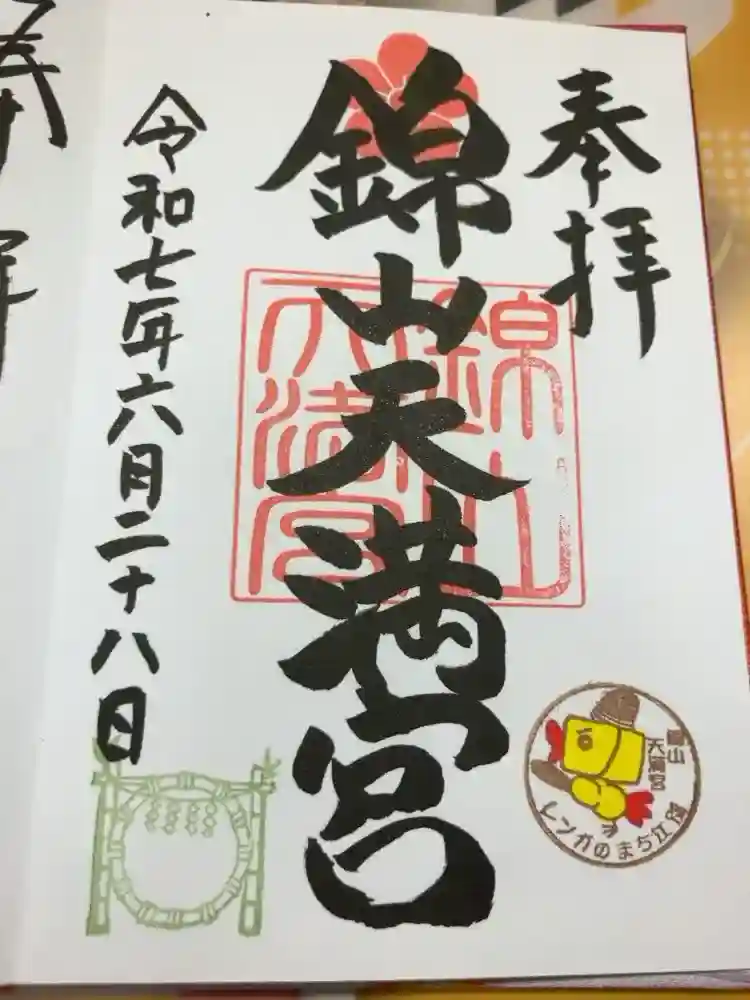 奉拝
錦山天満宮
令和七年六月二十八日
錦山
天満宮
錦山
天満宮
レンガのまち江別